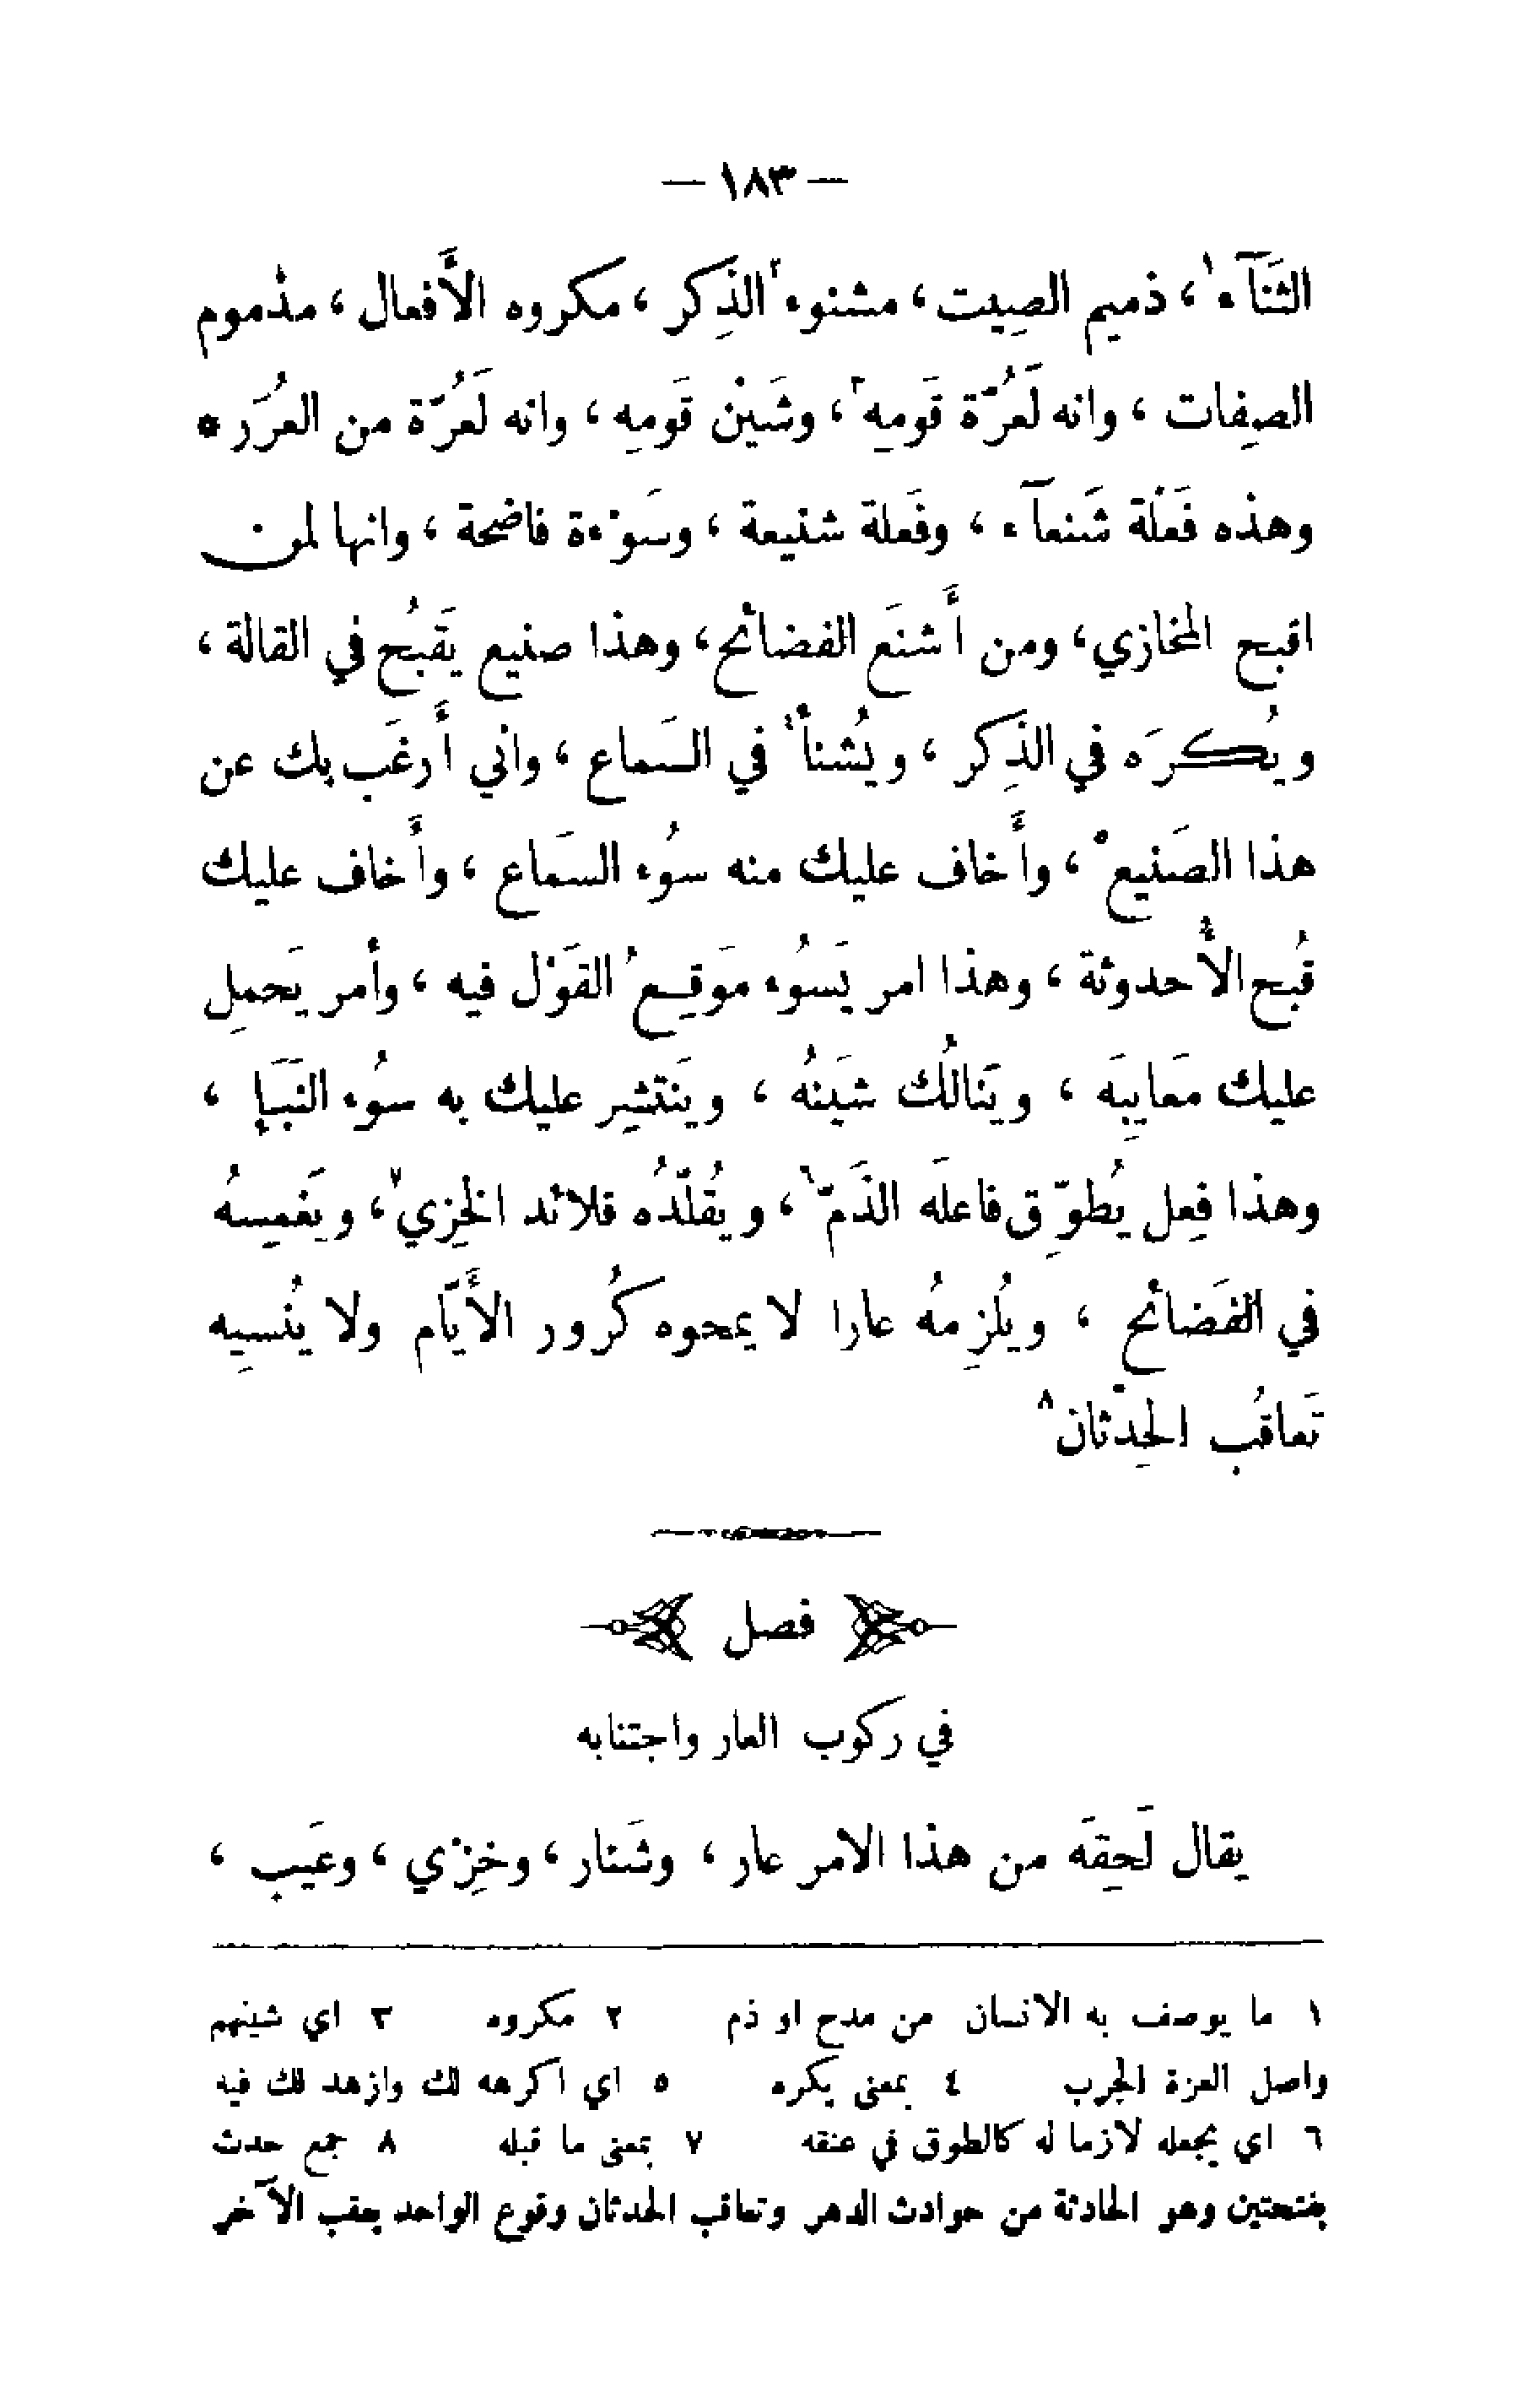 — ١٨٣ —
الثَنَآء١، ذميم الصِيت، مشنوء٢ الذِكر، مكروه الأَفعال، مذموم
الصِفات، وانه لَعُرَّة قَومِهِ٣، وشَيْن قَومِهِ، وانه لَعُرَّة من العُرَر *
وهذه فَعْلَة شَنعآء، وفَعلة شنيعة، وسَوْءة فاضحة، وانها لمن
اقبح المخازي، ومن أَشنَع الفضائح، وهذا صنيع يَقبُح في القالة،
ويُكرَه في الذِكر، ويُشنأ٤ في السَماع، واني أَرغَب بك عن
هذا الصَنيع٥، وأَخاف عليك منه سوُء السَماع، وأَخاف عليك
قُبح الأُحدوثة، وهذا امر يَسوُء مَوقِع القَوْل فيه، وأمر يَحمِل
عليك مَعايِبَه، ويَنالُك شَينُه، ويَنتشِر عليك به سوُء النَبَإ،
وهذا فِعل يُطوِّق فاعلَه الذَمّ٦، ويُقلّدُه قلائد الخِزي٧، ويَغمِسهُ
في الفَضائح، ويُلزِمهُ عارا لا يمحوه كُرور الأَيَّام ولا يُنسِيِه
تَعاقُب الحِدْثان٨
فصل
في ركوب العار واجتنابه
يقال لَحِقَه من هذا الامر عار، وشَنار، وخِزْي، وعَيب،
١ ما يوصف به الانسان من مدح او ذم ٢ مكروه ٣ اي شينهم
واصل العرة الجرب ٤ بمعنى يكره ٥ اي اكرهه لك وازهد لك فيه
٦ اي يجعله لازما له كالطوق في عنقه ٧ بمعنى ما قبله ٨ جمع حدث
بفتحتين وهو الحادثة من حوادث الدهر وتعاقب الحدثان وقوع الواحد بعقب الآخر